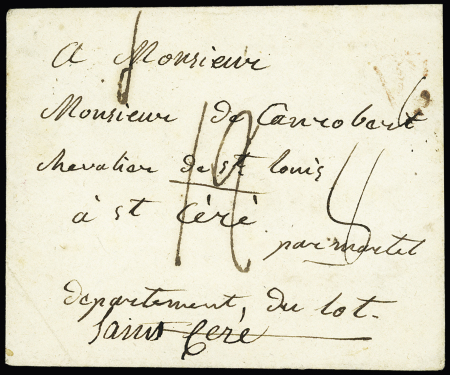 A Monsieur
Monsieur de Canrobert
chevalier de st louis
à st Céré
par martel
departement, du lot.
Saint Ceré